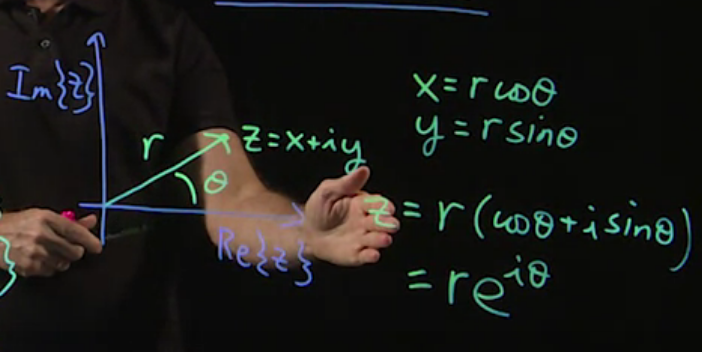 Im{z}
r
z=x+iy
θ
Re{z}
}
x=rcosθ
y=rsinθ
z=r(cosθ+isinθ)
=re^{iθ}